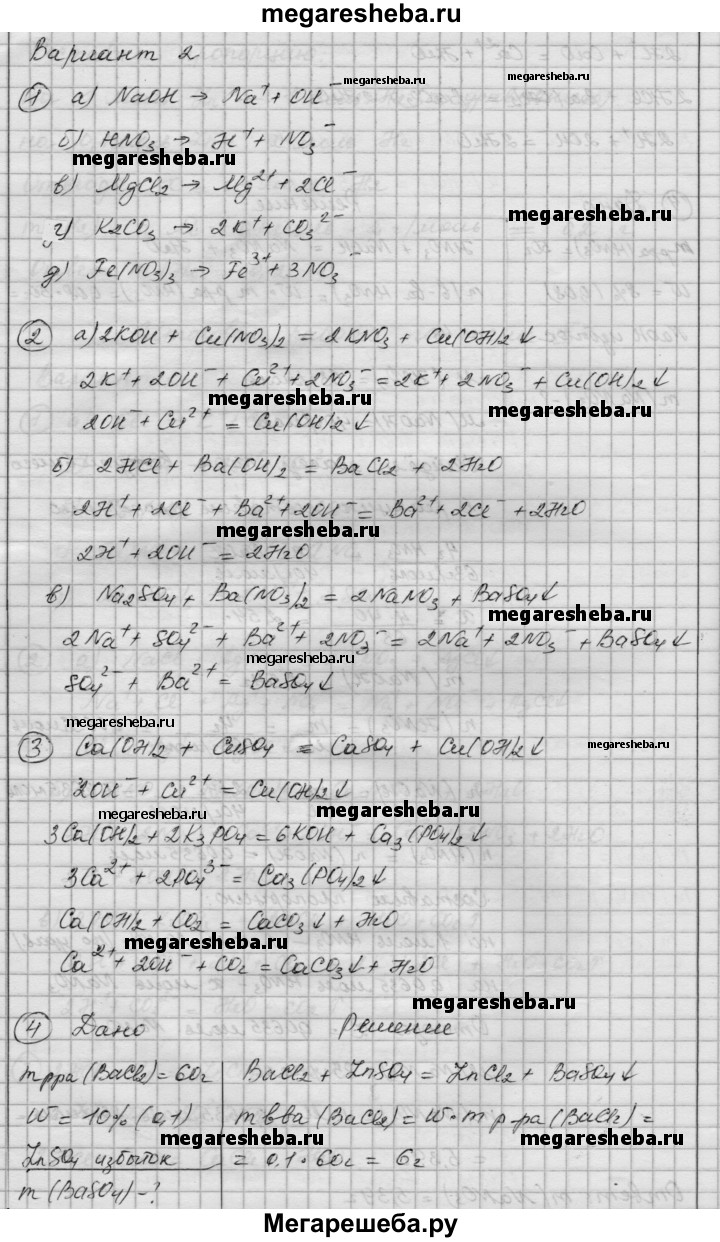 megaresheba.ru
Вариант 2
megaresheba.ru megaresheba.ru
1 а) NaOH → Na⁺ + OH⁻
б) HNO₃ → H⁺ + NO₃⁻
megaresheba.ru
в) MgCl₂ → Mg²⁺ + 2Cl⁻
megaresheba.ru
г) K₂CO₃ → 2K⁺ + CO₃²⁻
д) Fe(NO₃)₃ → Fe³⁺ + 3NO₃⁻
2 а) 2KOH + Cu(NO₃)₂ = 2KNO₃ + Cu(OH)₂↓
2K⁺ + 2OH⁻ + Cu²⁺ + 2NO₃⁻ = 2K⁺ + 2NO₃⁻ + Cu(OH)₂↓
megaresheba.ru
2OH⁻ + Cu²⁺ = Cu(OH)₂↓
б) 2HCl + Ba(OH)₂ = BaCl₂ + 2H₂O
2H⁺ + 2Cl⁻ + Ba²⁺ + 2OH⁻ = Ba²⁺ + 2Cl⁻ + 2H₂O
megaresheba.ru
2H⁺ + 2OH⁻ = 2H₂O
в) Na₂SO₄ + Ba(NO₃)₂ = 2NaNO₃ + BaSO₄↓
megaresheba.ru
2Na⁺ + SO₄²⁻ + Ba²⁺ + 2NO₃⁻ = 2Na⁺ + 2NO₃⁻ + BaSO₄↓
megaresheba.ru
SO₄²⁻ + Ba²⁺ = BaSO₄↓
megaresheba.ru
3 Ca(OH)₂ + CuSO₄ = CaSO₄ + Cu(OH)₂↓
megaresheba.ru
2OH⁻ + Cu²⁺ = Cu(OH)₂↓
megaresheba.ru megaresheba.ru
3Ca(OH)₂ + 2K₃PO₄ = 6KOH + Ca₃(PO₄)₂↓
3Ca²⁺ + 2PO₄³⁻ = Ca₃(PO₄)₂↓
Ca(OH)₂ + CO₂ = CaCO₃↓ + H₂O
megaresheba.ru
Ca²⁺ + 2OH⁻ + CO₂ = CaCO₃↓ + H₂O
megaresheba.ru
4 Дано Решение
m рра (BaCl₂) = 60г BaCl₂ + ZnSO₄ = ZnCl₂ + BaSO₄↓
megaresheba.ru
W = 10% (0,1) m вва (BaCl₂) = W · m р-ра (BaCl₂) =
megaresheba.ru megaresheba.ru
ZnSO₄ избыток = 0,1 · 60г = 6г
m (BaSO₄) - ?
Мегарешеба.ру